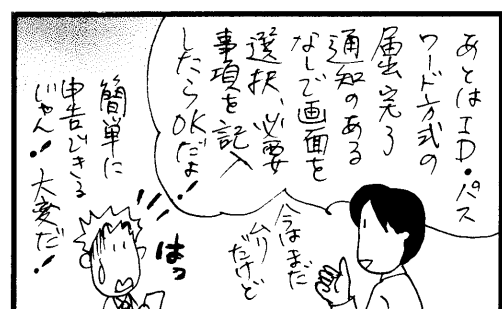 あとはID・パス
ワード方式の
届出完了
通知のある
なしで画面を
選択、必要
事項を記入
したらOKだよ!
今はまだ
ムリ
だけど
はっ
簡単に
申告できる
じゃん!大変だ!